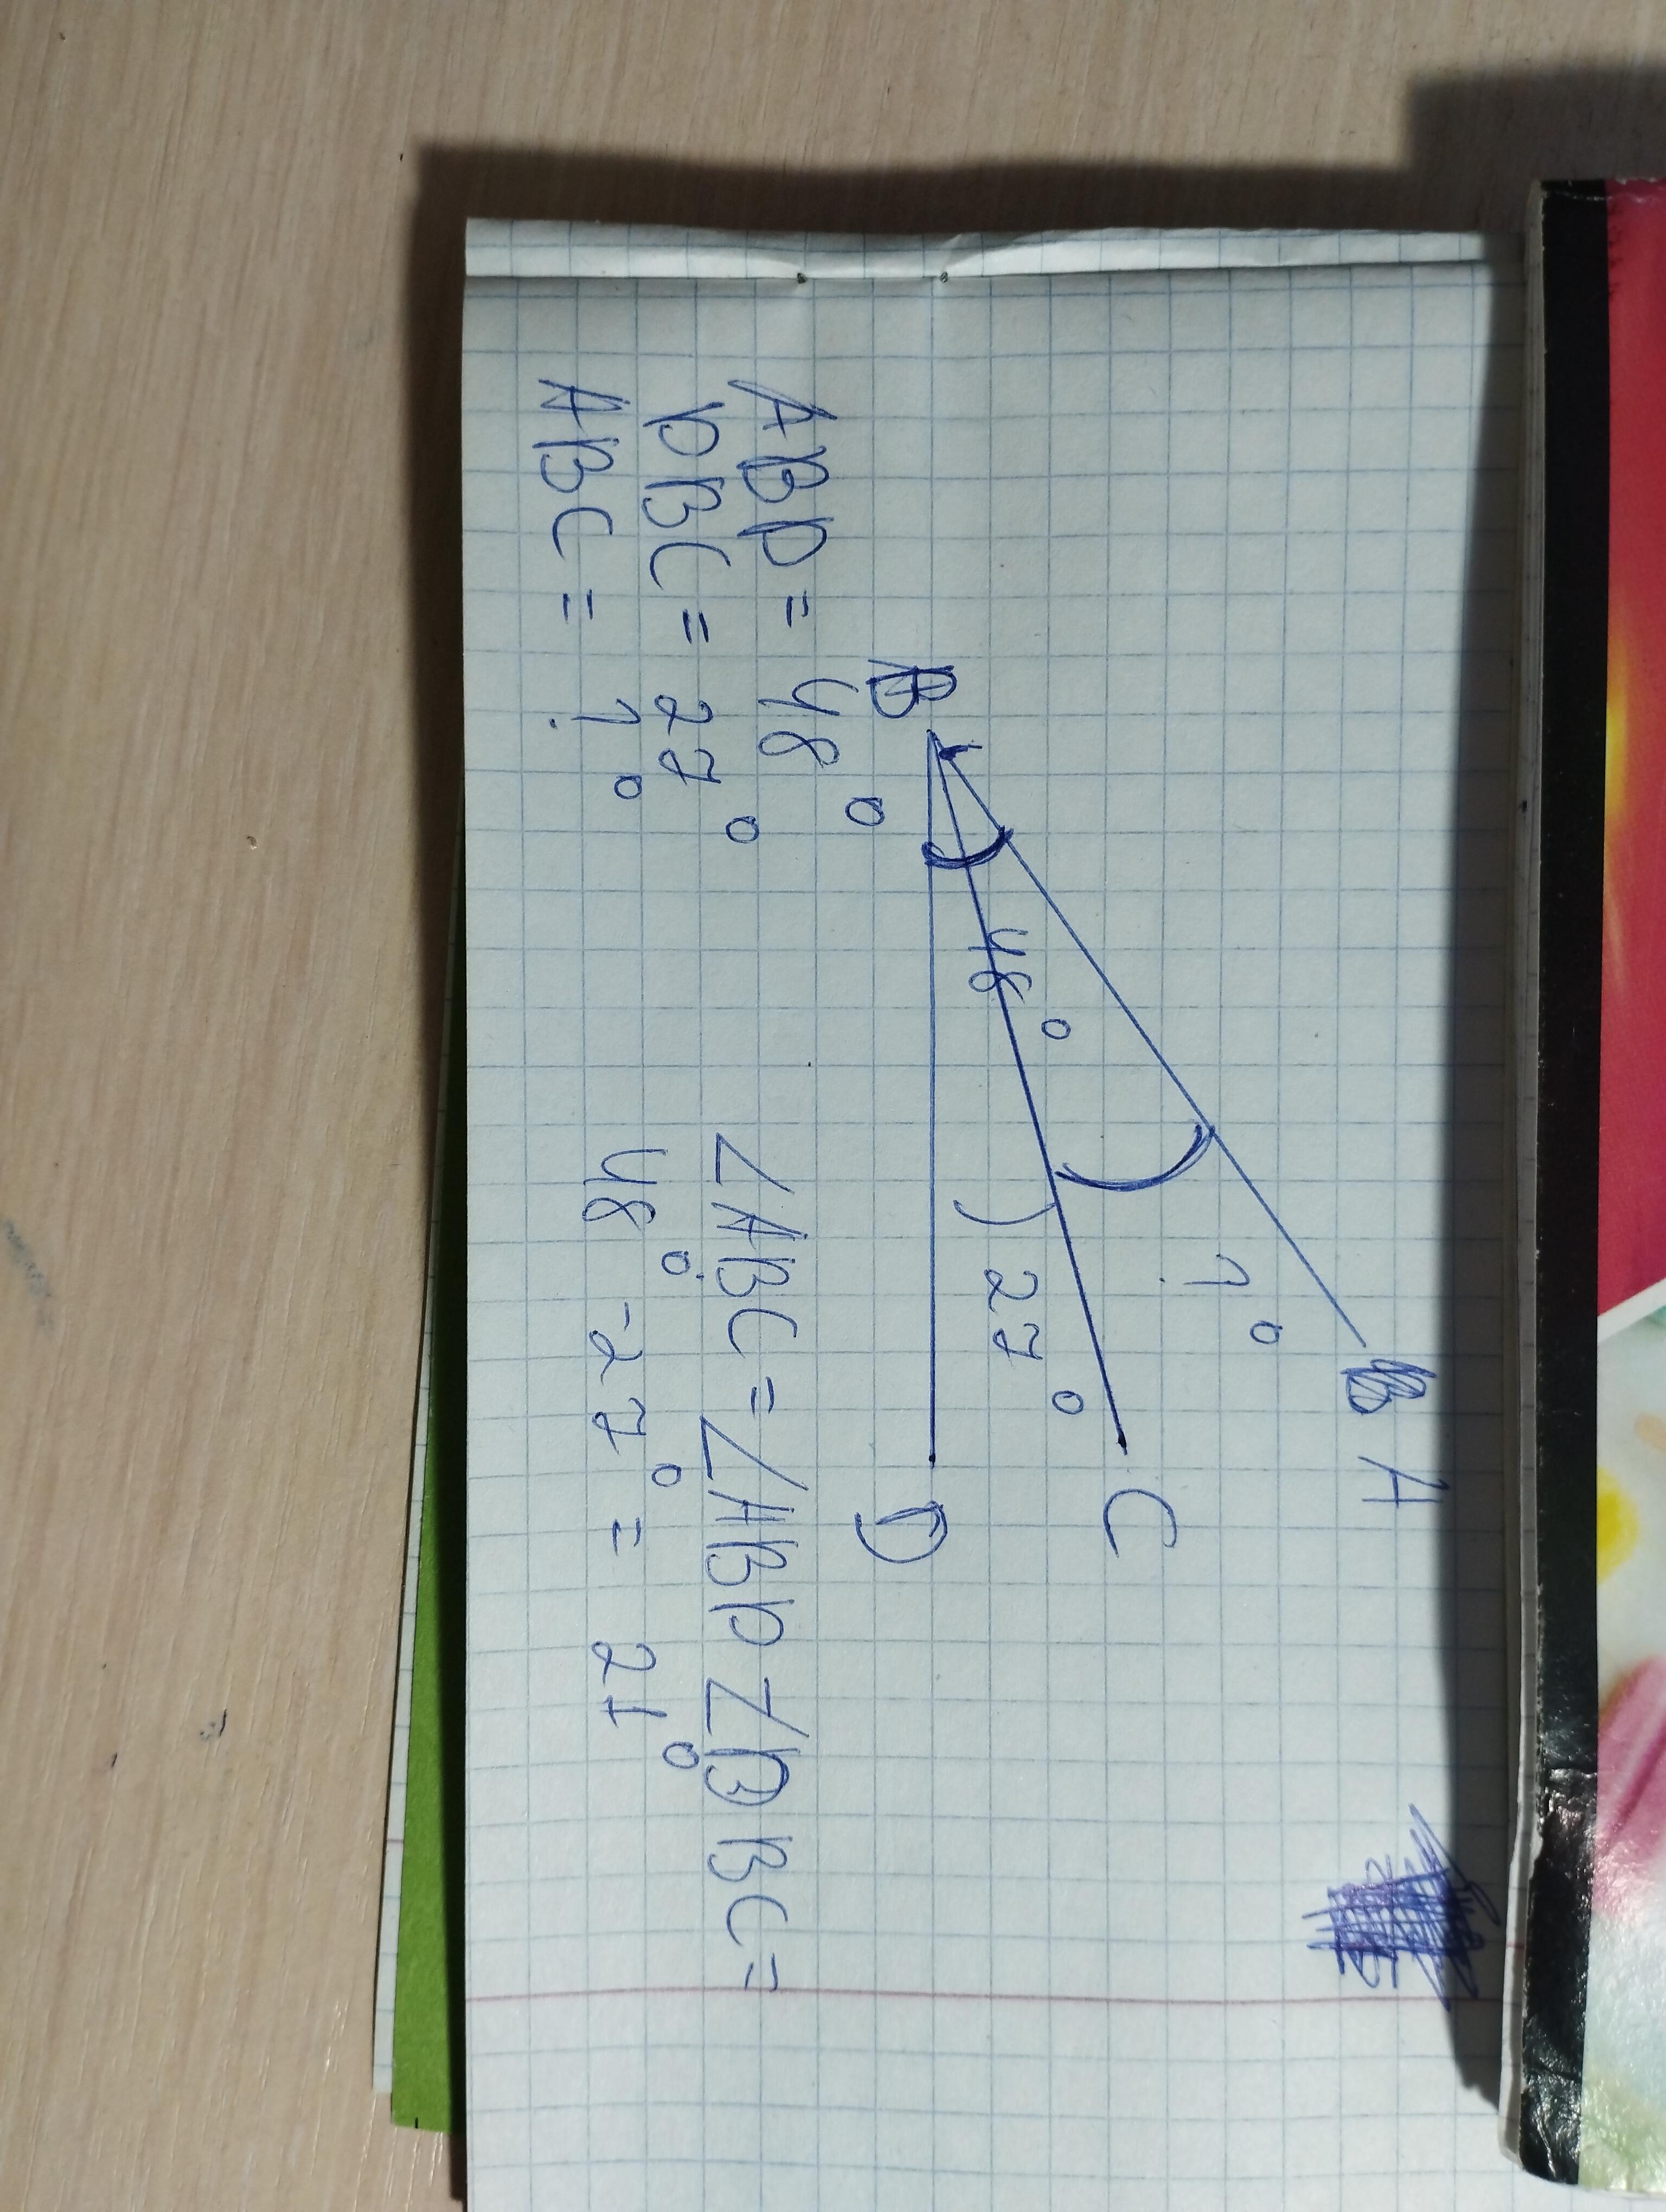 A
?°
C
48°
27°
B
D
ABD = 48°
DBC = 27°
ABC = ?°
∠ABC = ∠ABD ∠DBC =
48° - 27° = 21°